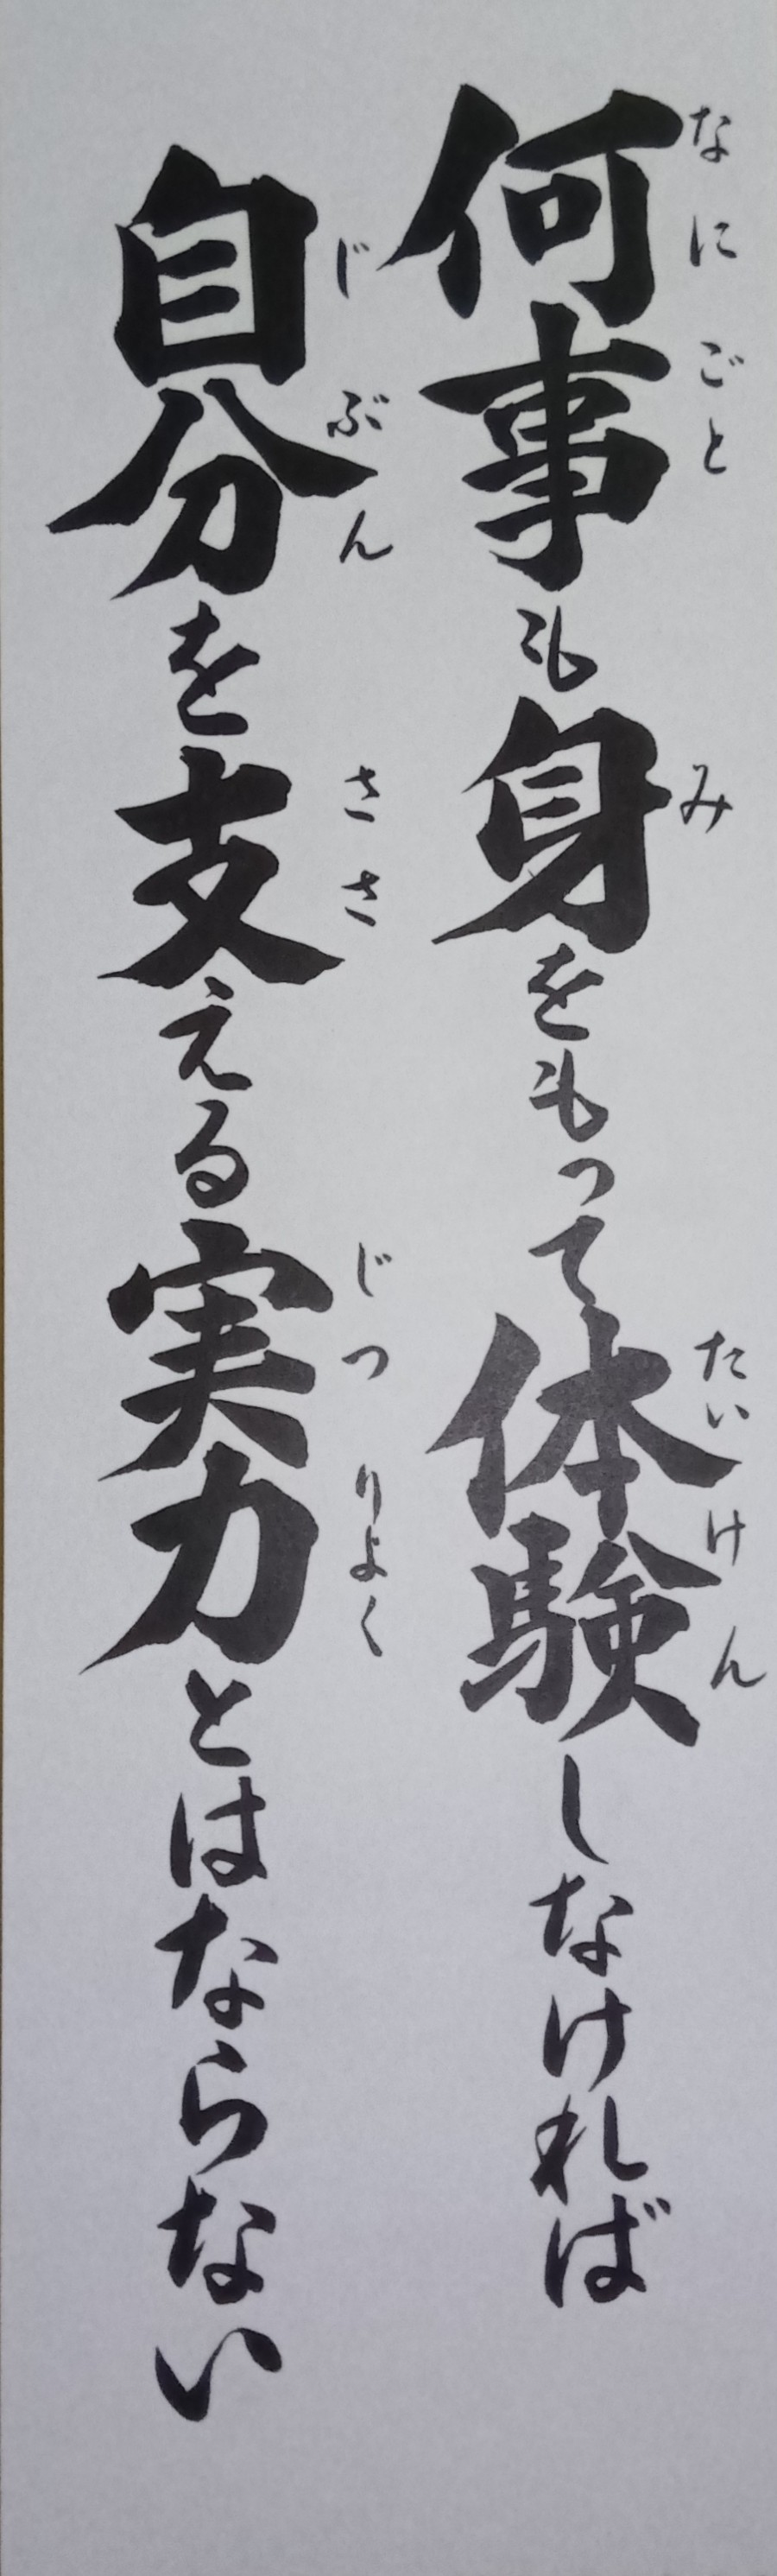 何事も身をもって体験しなければ
なにごと み たいけん
自分を支える実力とはならない
じぶん ささ じつりよく